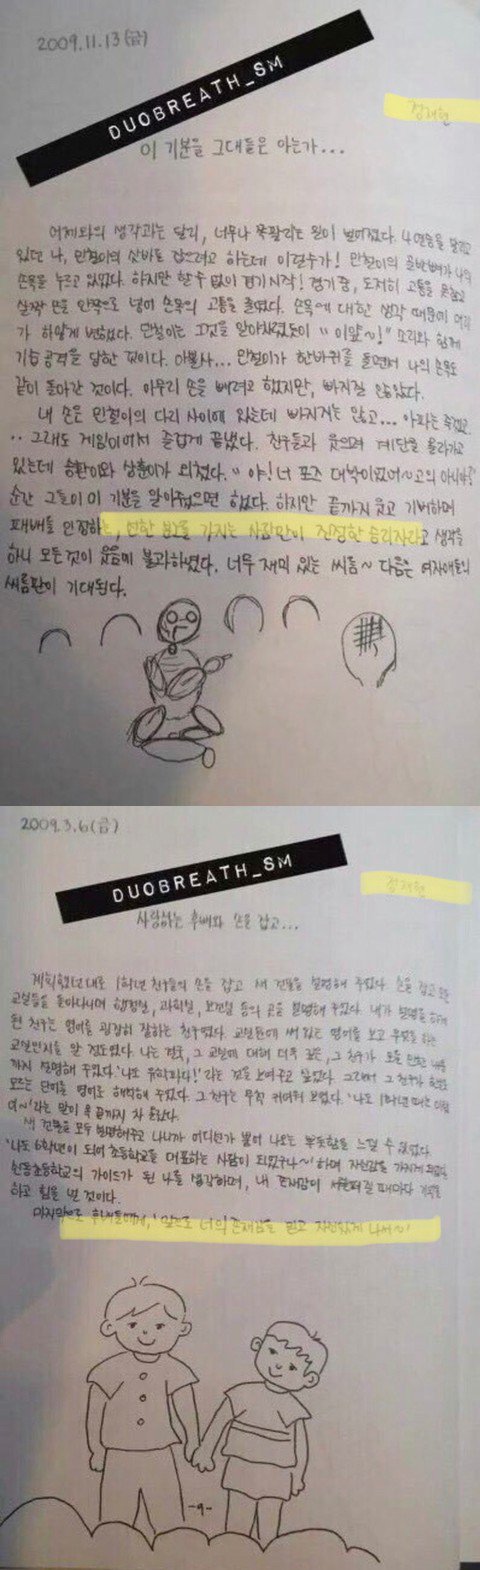 2009.11.13(금)
DUOBREATH_SM
정재현
이 기분을 그대들은 아는가...
어제와의 생각과는 달리, 너무나 쪽팔리는 일이 벌어졌다. 4연승을 달리고
있던 나, 민철이의 샅바를 잡으려고 하는데 이럴수가! 민철이의 골반뼈가 나의
손목을 누르고 있었다. 하지만 할 수 없이 경기시작! 경기 중, 도저히 고통을 못참고
살짝 손을 안쪽으로 넣어 손목의 고통을 줄였다. 손목에 대한 생각 때문에 머리
가 하얗게 변했다. 민철이는 그것을 알아차렸듯이 "이얍~!" 소리와 함께
기습공격을 당한 것이다. 아뿔사... 민철이가 한바퀴를 돌면서 나의 손목도
같이 돌아간 것이다. 아무리 손을 빼려고 했지만, 빠지질 않았다.
내 손은 민철이의 다리 사이에 있는데 빠지지는 않고... 아파는 죽겠고.
.. 그래도 게임이어서 즐겁게 끝냈다. 친구들과 웃으며 계단을 올라가고
있는데 승환이와 상훈이가 외쳤다. "야! 너 포즈 대박이었어~ 고의 아니야?"
순간 그들이 이 기분을 알아줬으면 했다. 하지만 끝까지 웃고 기뻐하며
패배를 인정하는, 이런 분을 가지는 사람만이 진정한 승리자라고 생각을
하니 모든것이 웃음에 불과하였다. 너무 재미 있는 씨름~ 다음은 여자애들의
씨름판이 기대된다.
2009.3.6(금)
DUOBREATH_SM
정재현
사랑하는 후배와 손을 잡고...
계획했던대로 1학년 친구들의 손을 잡고 새 건물을 설명해 주었다. 손을 잡고 모든
교실들을 돌아다니며 행정실, 과학실, 보건실 등의 곳을 설명해 주었다. 내가 설명을 하게
된 친구는 영어를 굉장히 잘하는 친구였다. 교실문에 써 있는 영어를 보고 무엇을 하는
교실인지를 알 정도였다. 나는 결국, 그 교실에 대해 더욱 깊은, 그 친구가 모를 만한 내용
까지 설명해 주었다. '나도 유학파다!' 라는 것을 보여주고 싶었다. 그래서 그 친구가
모르는 단어를 영어로 해석해 주었다. 그 친구는 무척 귀여워 보였다. '나도 1학년 때는 이랬
어~' 라는 말이 목 끝까지 차 올랐다.
새 건물을 모두 설명해주고 나니까 어디선가 뿜어 나오는 뿌듯함을 느낄 수 있었다.
'나도 6학년이 되어 초등학교를 대표하는 사람이 되었구나~' 하며 자신감을 가지게 되었다.
초등학교의 가이드가 된 나를 생각하며, 내 존재감이 사라질 때마다 기억을
하고 힘을 낼 것이다.
마지막으로 후배들에게, '앞으로 너의 존재감을 믿고 자신있게 나서~!'
-9-